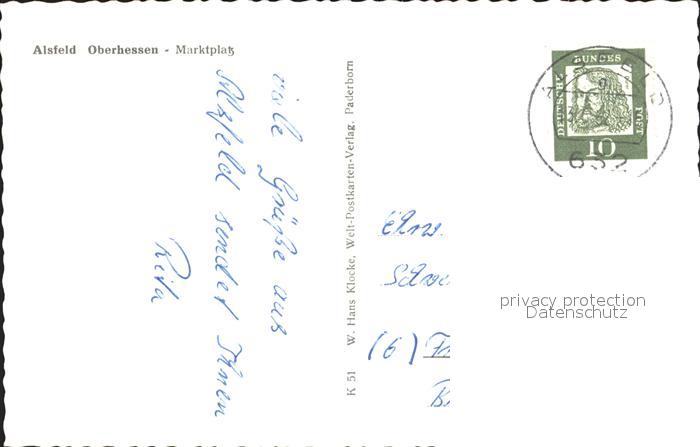 Alsfeld Oberhessen - Marktplatz
viele Grüße aus
Alsfeld sendet Ihnen
Rita
K 51 W. Hans Klocke, Welt-Postkarten-Verlag, Paderborn
DEUTSCHE
BUNDES
POST
10
632
(6)
privacy protection
Datenschutz